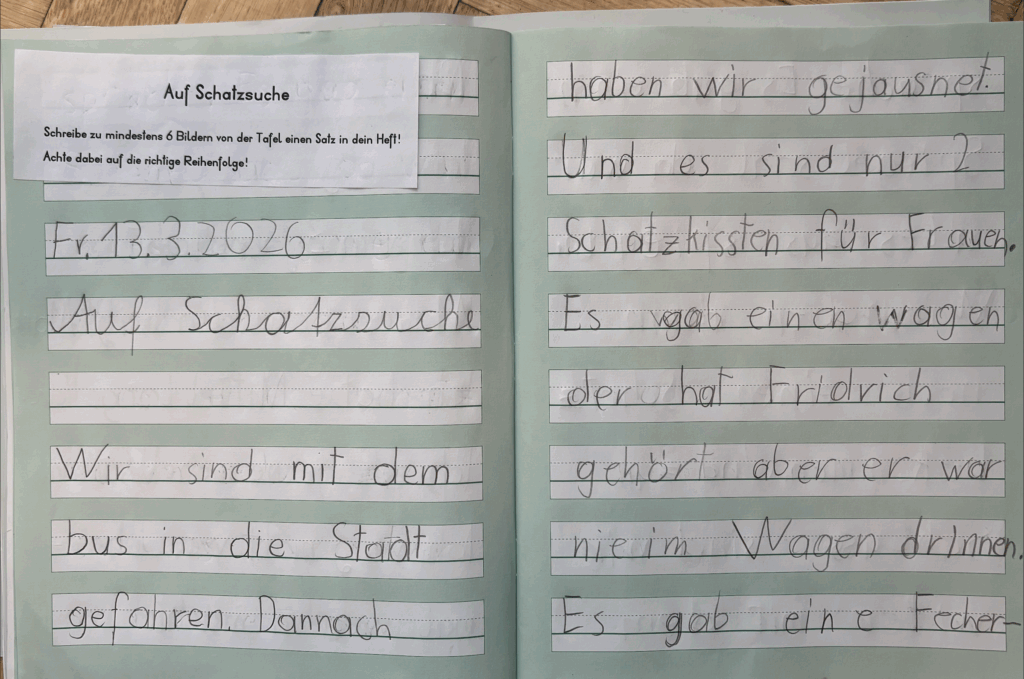 Auf Schatzsuche
Schreibe zu mindestens 6 Bildern von der Tafel einen Satz in dein Heft!
Achte dabei auf die richtige Reihenfolge!
Fr. 13.3.2026
Auf Schatzsuche
Wir sind mit dem
bus in die Stadt
gefahren. Dannach
haben wir gejausnet.
Und es sind nur 2
Schatzkissten für Frauen.
Es gab einen wagen
der hat Fridrich
gehört aber er war
nie im Wagen drinnen.
Es gab eine Fecher-